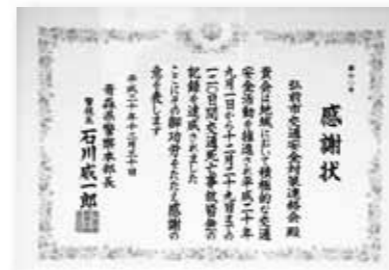 感謝状
弘前市交通安全対策連絡会殿
貴会は地域において積極的な交通
安全活動を推進され平成二十年
九月一日から十二月二十九日までの
一二〇日間交通死亡事故皆無の
記録を達成されました
ここにその御功労をたたえ感謝の
意を表します
平成二十年十二月三十日
青森県警察本部長
警視長 石川威一郎